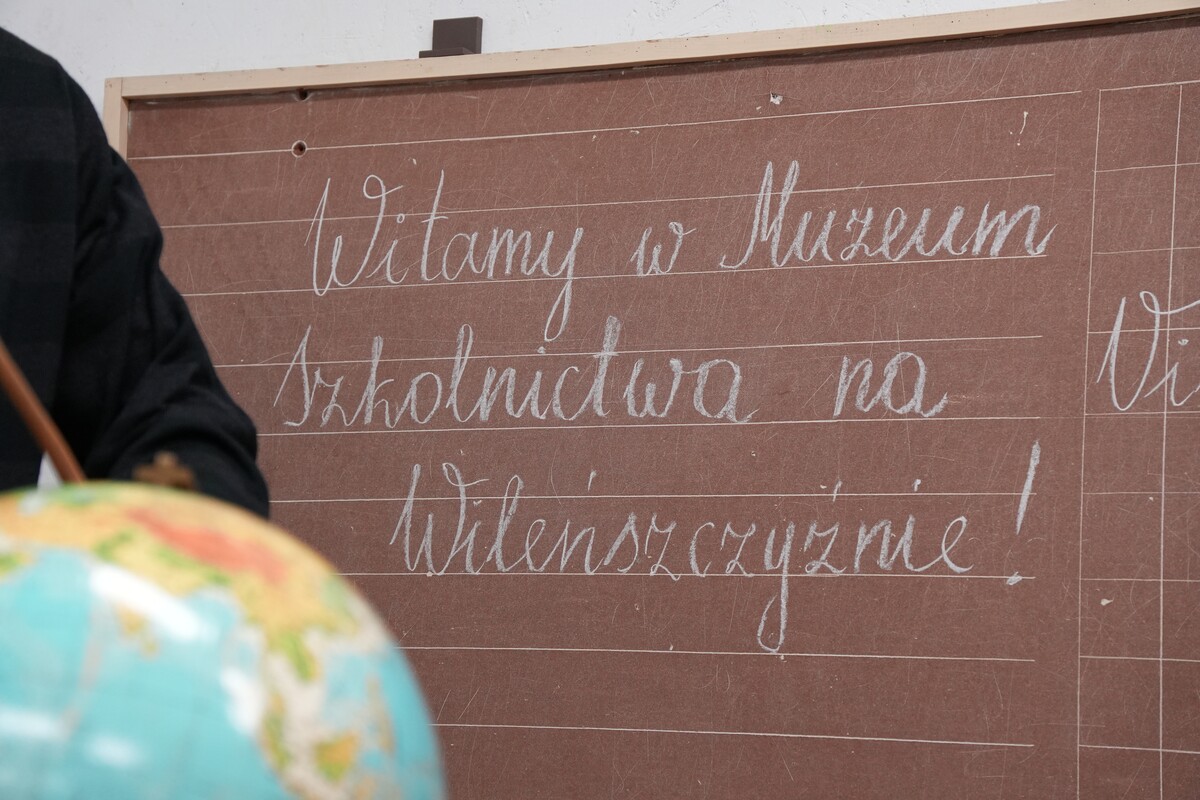 Witamy w Muzeum
Szkolnictwa na
Wileńszczyźnie!
Wi